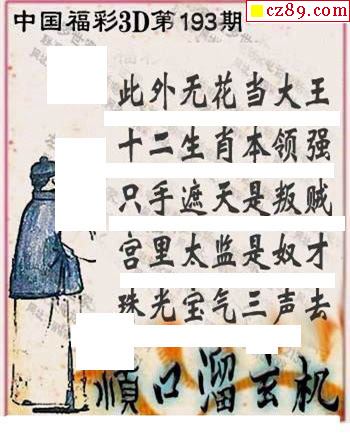 cz89.com
中国福彩3D第193期
此外无花当大王
十二生肖本领强
只手遮天是叛贼
宫里太监是奴才
珠光宝气三声去
順口溜玄机